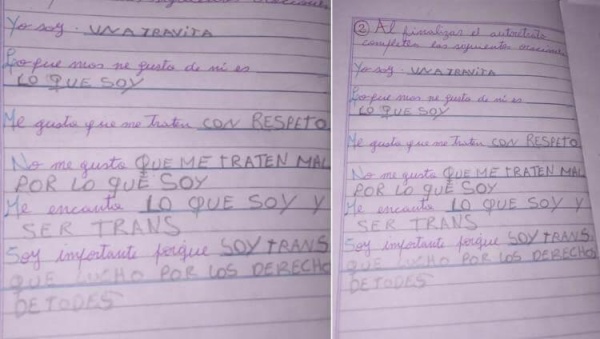 Yo soy. UNA TRAVITA
Lo que mas me gusta de mi es
LO QUE SOY
Me gusta que me traten CON RESPETO
No me gusta QUE ME TRATEN MAL
POR LO QUE SOY
Me encanta LO QUE SOY Y
SER TRANS
Soy importante porque SOY TRANS
QUE LUCHO POR LOS DERECHO
DE TODES
② Al finalizar el autorretrato
completen las siguientes oraciones
Yo soy. UNA TRAVITA
Lo que mas me gusta de mi es
LO QUE SOY
Me gusta que me traten CON RESPETO
No me gusta QUE ME TRATEN MAL
POR LO QUE SOY
Me encanta LO QUE SOY Y
SER TRANS
Soy importante porque SOY TRANS
QUE LUCHO POR LOS DERECHO
DE TODES